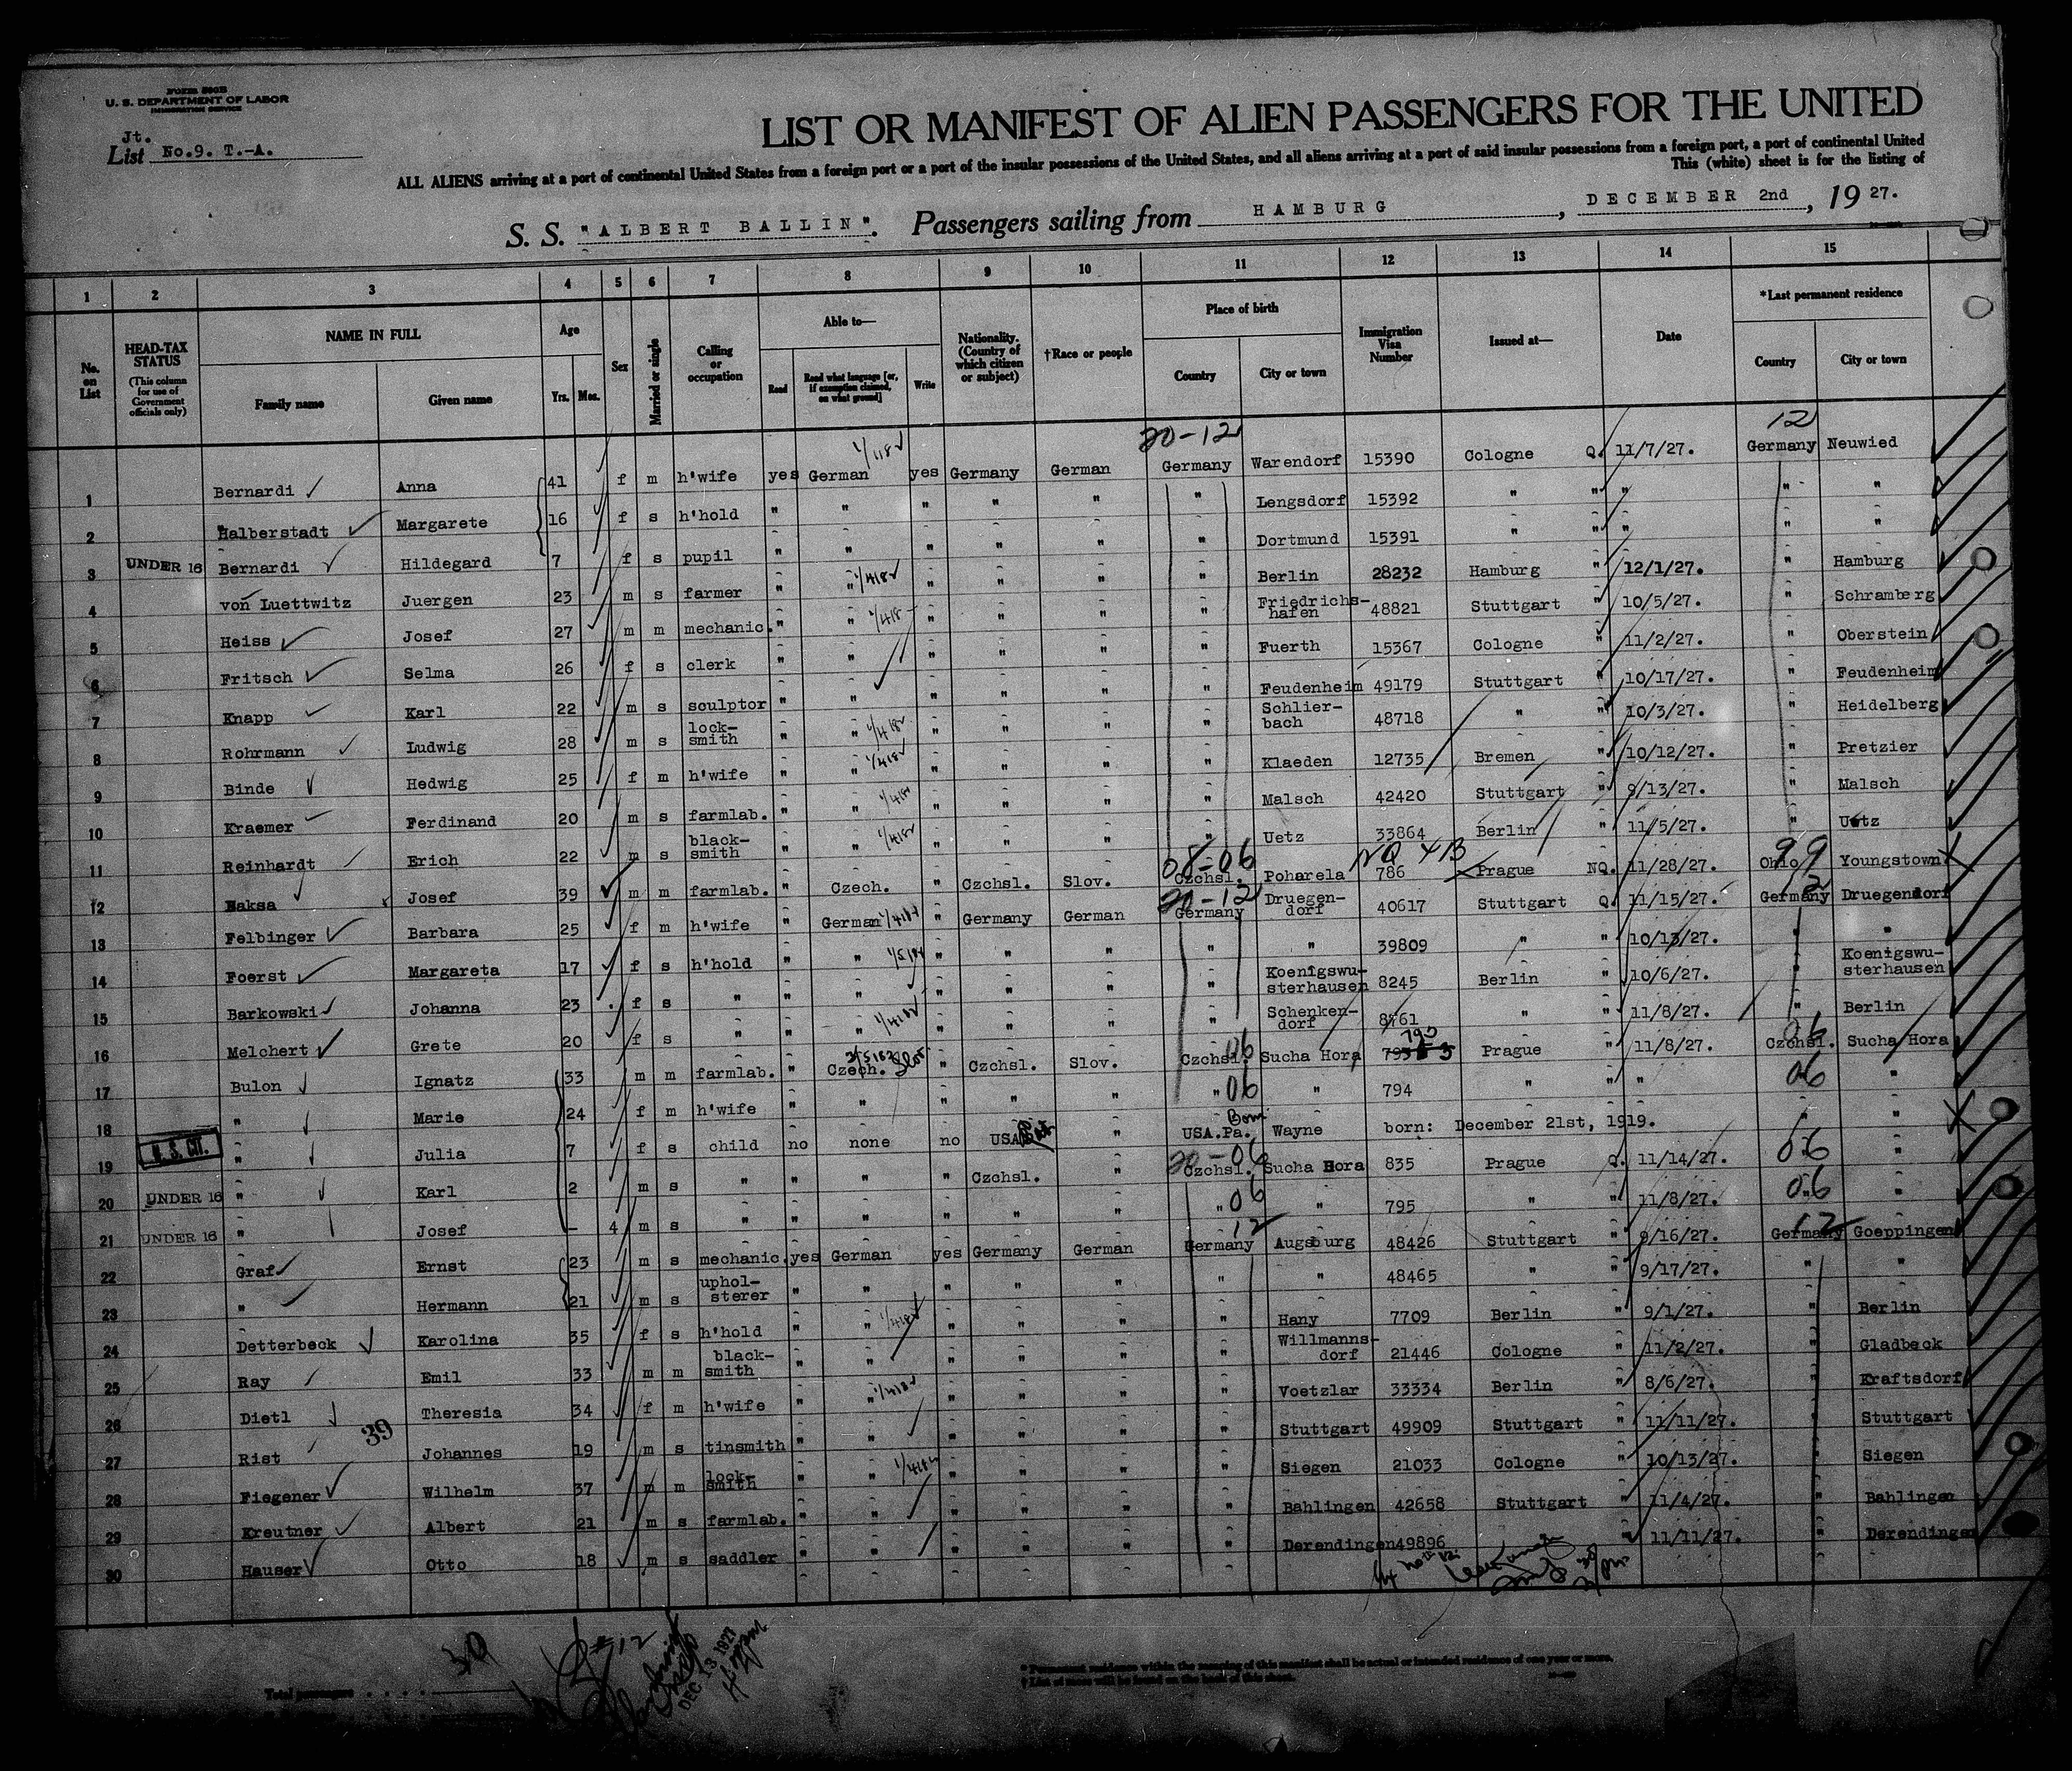 FORM 500B
U. S. DEPARTMENT OF LABOR
IMMIGRATION SERVICE
Jt.
List No.9. T.-A.
LIST OR MANIFEST OF ALIEN PASSENGERS FOR THE UNITED
ALL ALIENS arriving at a port of continental United States from a foreign port or a port of the insular possessions of the United States, and all aliens arriving at a port of said insular possessions from a foreign port, a port of continental United
This (white) sheet is for the listing of
S. S. "ALBERT BALLIN". Passengers sailing from HAMBURG, DECEMBER 2nd, 1927.
1 2 3 4 5 6 7 8 9 10 11 12 13 14 15
No. on List
HEAD-TAX STATUS (This column for use of Government officials only)
NAME IN FULL Family name Given name
Age Yrs. Mos.
Sex
Married or single
Calling or occupation
Able to— Read Read what language [or, if exemption claimed, on what ground] Write
Nationality. (Country of which citizen or subject)
†Race or people
Place of birth Country City or town
Immigration Visa Number
Issued at—
Date
*Last permanent residence Country City or town
20-12 12
1 Bernardi Anna 41 f m h'wife yes German yes Germany German Germany Warendorf 15390 Cologne Q. 11/7/27. Germany Neuwied
2 Halberstadt Margarete 16 f s h'hold " " " " " " Lengsdorf 15392 " " " " "
3 UNDER 16 Bernardi Hildegard 7 f s pupil " " " " " " Dortmund 15391 " " " " "
4 von Luettwitz Juergen 23 m s farmer " " " " " " Berlin 28232 Hamburg " 12/1/27. " Hamburg
5 Heiss Josef 27 m m mechanic. " " " " " " Friedrichs-hafen 48821 Stuttgart " 10/5/27. " Schramberg
6 Fritsch Selma 26 f s clerk " " " " " " Fuerth 15367 Cologne " 11/2/27. " Oberstein
7 Knapp Karl 22 m s sculptor " " " " " " Feudenheim 49179 Stuttgart " 10/17/27. " Feudenheim
8 Rohrmann Ludwig 28 m s lock-smith " " " " " " Schlier-bach 48718 " " 10/3/27. " Heidelberg
9 Binde Hedwig 25 f m h'wife " " " " " " Klaeden 12735 Bremen " 10/12/27. " Pretzier
10 Kraemer Ferdinand 20 m s farmlab. " " " " " " Malsch 42420 Stuttgart " 9/13/27. " Malsch
11 Reinhardt Erich 22 m s black-smith " " " " " " Uetz 33864 Berlin " 11/5/27. " Uetz
08-06 NQ 4B 99
12 Haksa Josef 39 m m farmlab. " Czech. " Czchsl. Slov. Czchsl. Poharela 786 Prague NQ. 11/28/27. Ohio Youngstown
20-12 12
13 Felbinger Barbara 25 f m h'wife " German " Germany German Germany Druegen-dorf 40617 Stuttgart Q. 11/15/27. Germany Druegendorf
14 Foerst Margareta 17 f s h'hold " " " " " " " 39809 " " 10/13/27. " "
15 Barkowski Johanna 23 f s " " " " " " " Koenigswu-sterhausen 8245 Berlin " 10/6/27. " Koenigswu-sterhausen
16 Melchert Grete 20 f s " " " " " " " Schenken-dorf 8761 " " 11/8/27. " Berlin
17 Bulon Ignatz 33 m m farmlab. " Czech. Slov. " Czchsl. Slov. Czchsl. 06 Sucha Hora 793 Prague " 11/8/27. Czchsl. 06 Sucha Hora
18 " Marie 24 f m h'wife " " " " " " 06 " 794 " " " 06 "
19 U. S. CIT. " Julia 7 f s child no none no USA " USA.Pa. Born Wayne born: December 21st, 1919. " "
20-06 06
20 UNDER 16 " Karl 2 m s " " " " Czchsl. " Czchsl. Sucha Hora 835 Prague Q. 11/14/27. "
21 UNDER 16 " Josef - 4 m s " " " " " " " 06 " 795 " " 11/8/27. 06 "
22 Graf Ernst 23 m s mechanic. yes German yes Germany German Germany 12 Augsburg 48426 Stuttgart " 9/16/27. Germany 12 Goeppingen
23 " Hermann 21 m s uphol-sterer " " " " " " " 48465 " " 9/17/27. " "
24 Detterbeck Karolina 35 f s h'hold " " " " " " Hany 7709 Berlin " 9/1/27. " Berlin
25 Ray Emil 33 m m black-smith " " " " " " Willmanns-dorf 21446 Cologne " 11/2/27. " Gladbeck
26 Dietl Theresia 34 f m h'wife " " " " " " Voetzlar 33334 Berlin " 8/6/27. " Kraftsdorf
27 Rist 39 Johannes 19 m s tinsmith " " " " " " Stuttgart 49909 Stuttgart " 11/11/27. " Stuttgart
28 Fiegener Wilhelm 37 m m lock-smith " " " " " " Siegen 21033 Cologne " 10/13/27. " Siegen
29 Kreutner Albert 21 m s farmlab. " " " " " " Bahlingen 42658 Stuttgart " 11/4/27. " Bahlingen
30 Hauser Otto 18 m s saddler " " " " " " Derendingen 49896 " 11/11/27. " Derendingen
Total passengers . . . . 30
#12
DEC 13 1927
* Permanent residence within the meaning of this manifest shall be actual or intended residence of one year or more.
† List of races will be found on the back of this sheet.